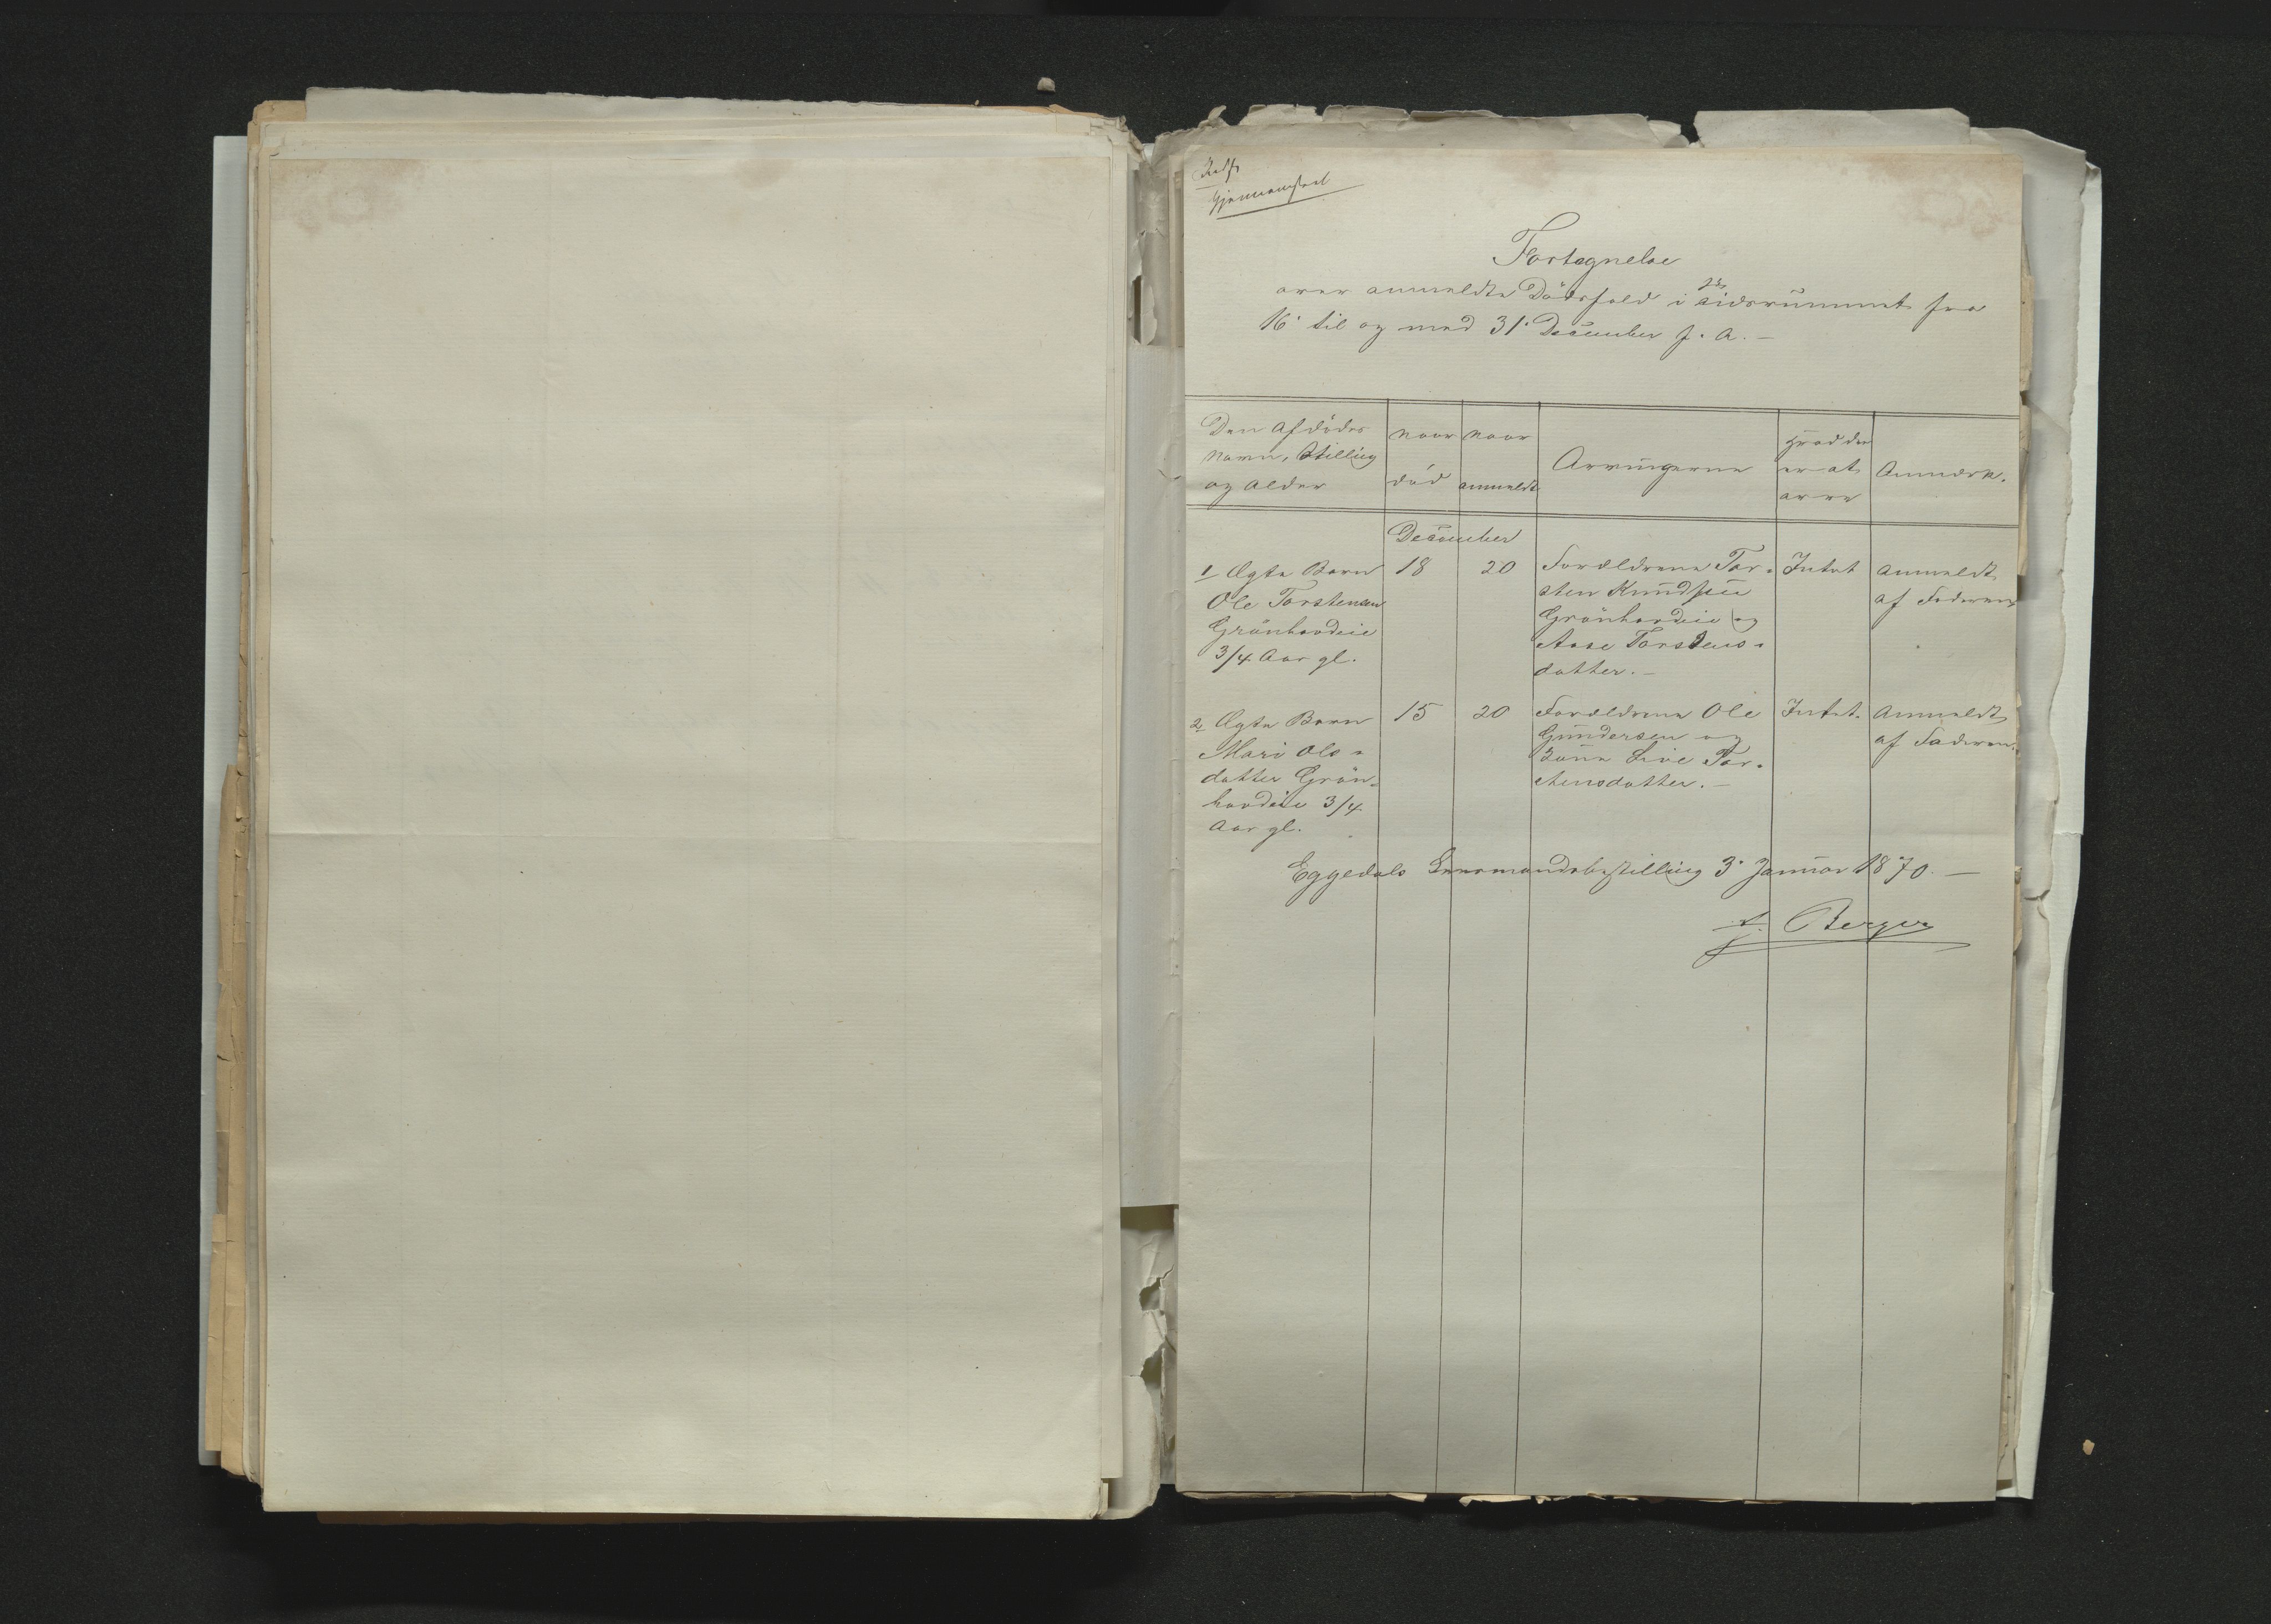 Gjennemseet
Fortegnelse
over anmeldte Dödsfald i Tidsrummet fra
16' til og med 31' December f. A. —
Den Afdödes
Navn, Stilling
og Alder
naar
död
naar
anmeldt
Arvingerne
Hvad der
er at
arve
Anmærk.
December
1 Ægte Barn
Ole Torstensen
Grönhovdeie
3/4 Aar gl.
18
20
Forældrene Tor-
sten Knudsen
Grönhovdeie og
Aase Torstens-
datter. —
Intet
Anmeldt
af Faderen
2 Ægte Barn
Mari Ols-
datter Grön-
hovdeie 3/4
Aar gl.
15
20
Forældrene Ole
Gundersen og
Kone Live Tor-
stensdatter. —
Intet.
Anmeldt
af Faderen.
Eggedals Lensmandsbestilling 3' Januar 1870. —
Berger